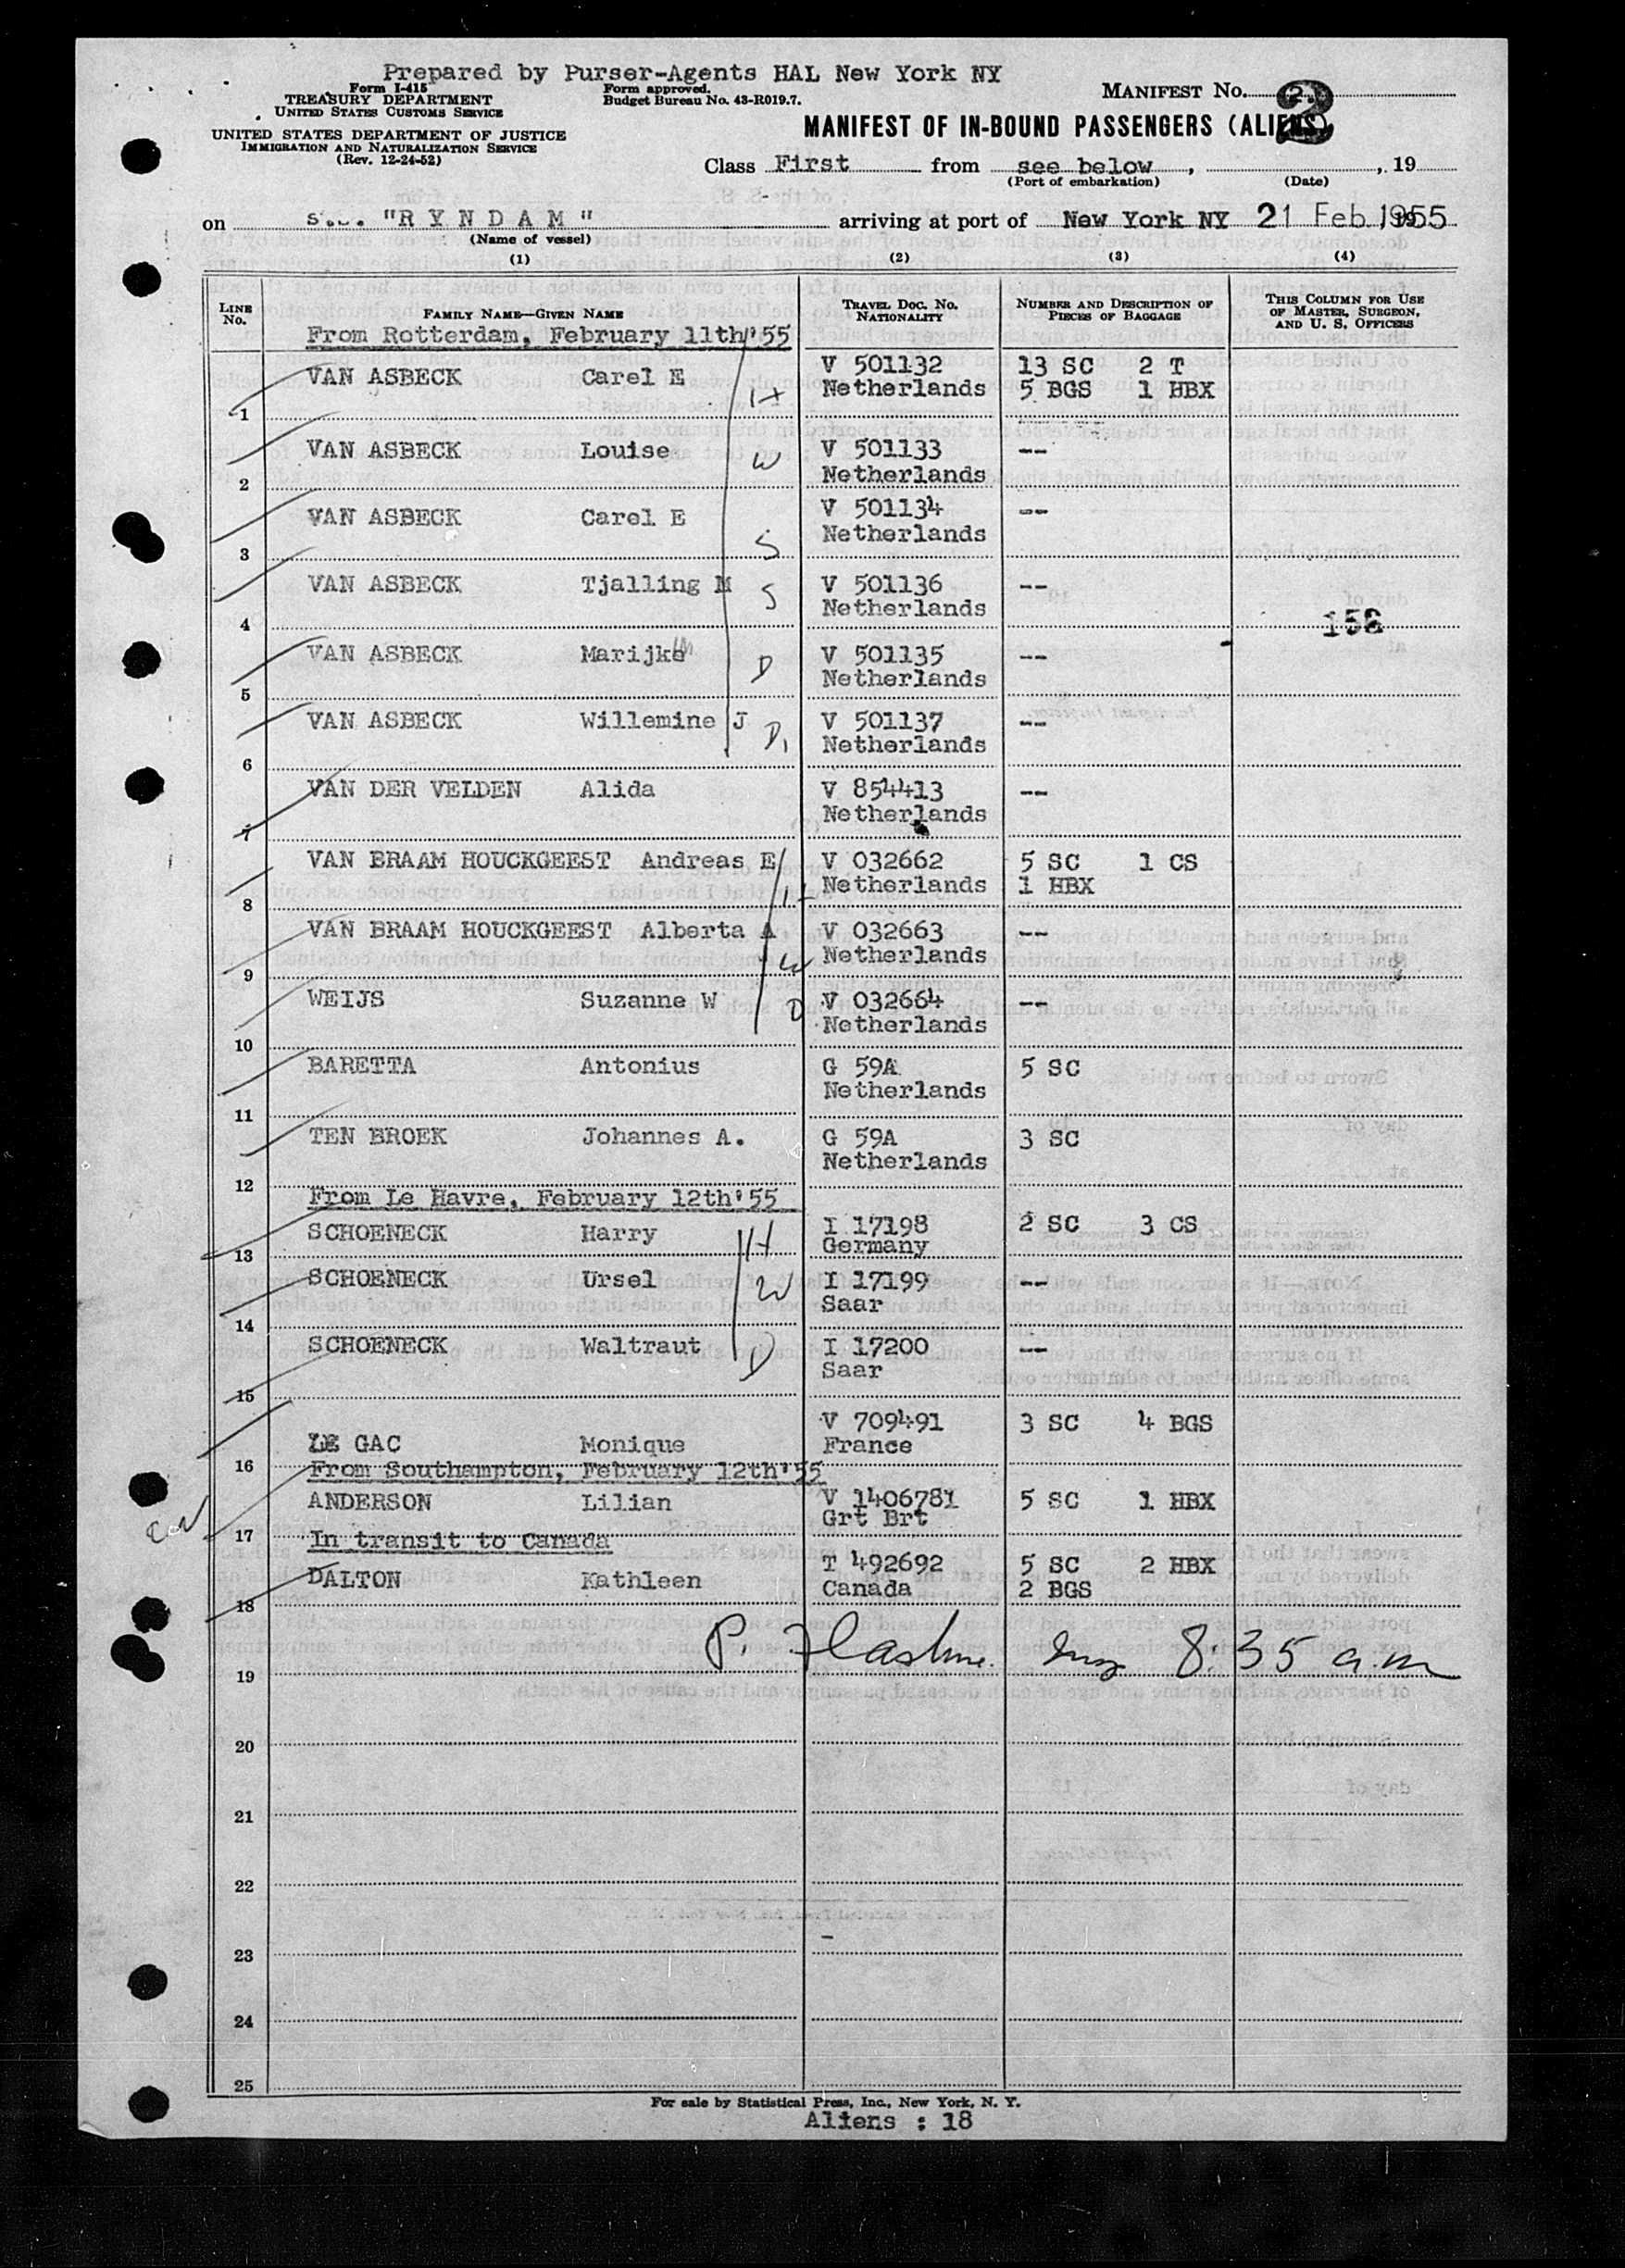 Prepared by Purser-Agents HAL New York NY
Form I-415
TREASURY DEPARTMENT
UNITED STATES CUSTOMS SERVICE
UNITED STATES DEPARTMENT OF JUSTICE
IMMIGRATION AND NATURALIZATION SERVICE
(Rev. 12-24-52)
Form approved.
Budget Bureau No. 43-R019.7.
MANIFEST No. 2
MANIFEST OF IN-BOUND PASSENGERS (ALIENS)
Class First from see below, , 19
(Port of embarkation) (Date)
on s.s. "R Y N D A M" arriving at port of New York NY 21 Feb 1955
(Name of vessel)
(1) (2) (3) (4)
LINE No. FAMILY NAME—GIVEN NAME TRAVEL DOC. NO. NATIONALITY NUMBER AND DESCRIPTION OF PIECES OF BAGGAGE THIS COLUMN FOR USE OF MASTER, SURGEON, AND U. S. OFFICERS
From Rotterdam, February 11th'55
1 VAN ASBECK Carel E H V 501132 Netherlands 13 SC 2 T 5 BGS 1 HBX
2 VAN ASBECK Louise W V 501133 Netherlands --
3 VAN ASBECK Carel E S V 501134 Netherlands --
4 VAN ASBECK Tjalling M S V 501136 Netherlands -- 158
5 VAN ASBECK Marijke M D V 501135 Netherlands --
6 VAN ASBECK Willemine J D V 501137 Netherlands --
7 VAN DER VELDEN Alida V 854413 Netherlands --
8 VAN BRAAM HOUCKGEEST Andreas E H V 032662 Netherlands 5 SC 1 CS 1 HBX
9 VAN BRAAM HOUCKGEEST Alberta A W V 032663 Netherlands --
10 WEIJS Suzanne W D V 032664 Netherlands --
11 BARETTA Antonius G 59A Netherlands 5 SC
12 TEN BROEK Johannes A. G 59A Netherlands 3 SC
From Le Havre, February 12th'55
13 SCHOENECK Harry H I 17198 Germany 2 SC 3 CS
14 SCHOENECK Ursel W I 17199 Saar --
15 SCHOENECK Waltraut D I 17200 Saar --
16 LE GAC Monique V 709491 France 3 SC 4 BGS
From Southampton, February 12th'55
17 ANDERSON Lilian V 1406781 Grt Brt 5 SC 1 HBX
In transit to Canada
18 DALTON Kathleen T 492692 Canada 5 SC 2 HBX 2 BGS
19 P. 8:35 a.m
20
21
22
23
24
25
For sale by Statistical Press, Inc., New York, N. Y.
Aliens : 18